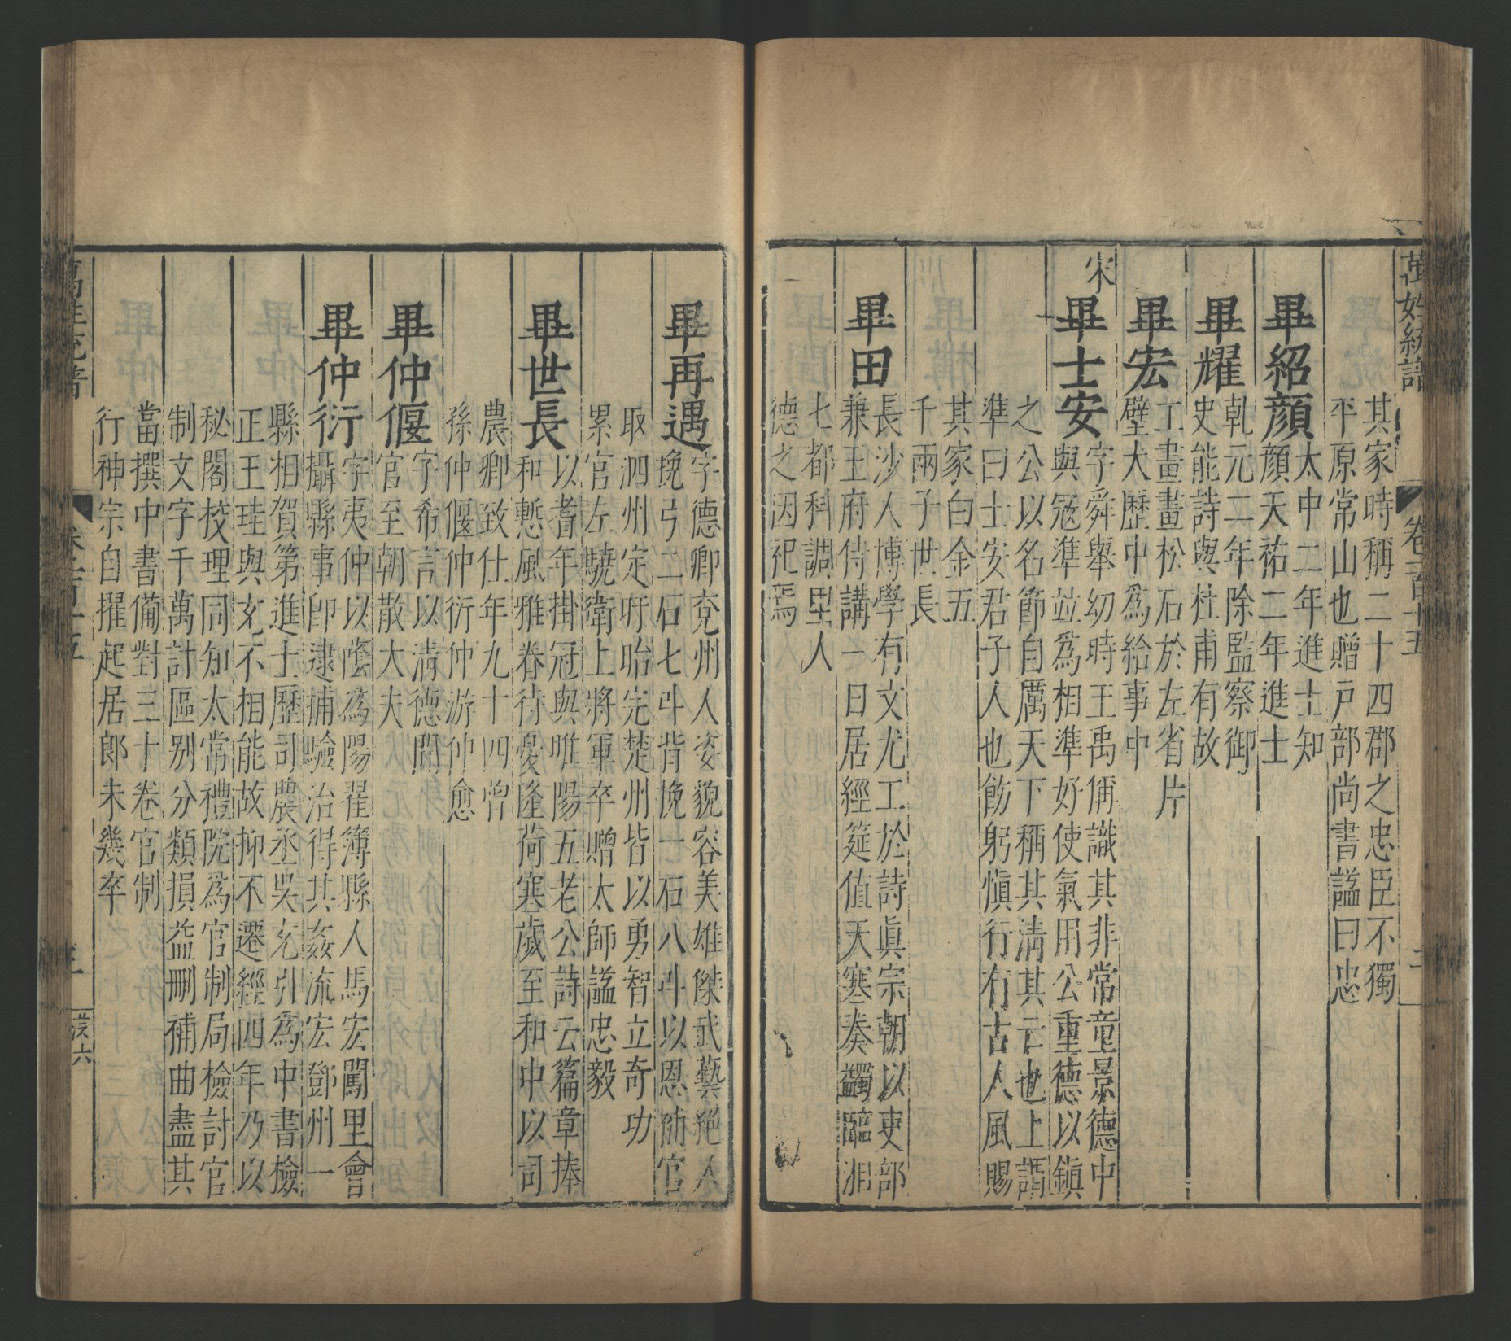 萬姓統譜
卷一百十五
二
其家時稱二十四郡之忠臣不獨
平原常山也贈戶部尚書謚曰忠
畢紹顏太中二年進士知
顏天祐二年進士
畢耀乾元二年除監察御
史能詩與杜甫有故
畢宏工畫畫松石於左省片
壁大歷中為給事中
宋
畢士安字舜舉幼時王禹偁識其非常童景德中
與寇準並爲相準好使氣用公重德以鎮
之公以名節自厲天下稱其清其云也上謂
準曰士安君子人也飭躬慎行有古人風賜
其家白金五
千兩子世長
畢田長沙人博學有文尤工於詩眞宗朝以吏部
兼王府侍講一日居經筵值天寒奏蠲臨湘
七都科調里人
德之因祀焉
畢再遇字德卿兗州人姿貌容美雄傑武藝絕人
挽弓二石七斗背挽一石八斗以恩補官
取泗州定盱眙完楚州皆以勇智立奇功
累官左驍衛上將軍卒贈太師謚忠毅
畢世長以耆年掛冠與睢陽五老公詩云篇章捧
和慙風雅眷待憂隆荷寒歲至和中以司
農卿致仕年九十四曾
孫仲偃仲衍仲游仲愈
畢仲偃字希言以淸德聞
官至朝散大夫
畢仲衍字夷仲以廕為陽翟簿縣人馬宏闘里會
攝縣事卽逮捕驗治得其姦流宏鄧州一
縣相賀第進士歷司農丞吳充引為中書檢
正王珪與充不相能故抑不遷經四年乃以
秘閣校理同知太常禮院爲官制局檢討官
制文字千萬計區别分類損益刪補曲盡其
當撰中書備對三十卷官制
行神宗自擢起居郎未幾卒
萬姓統譜
卷一百十五
三